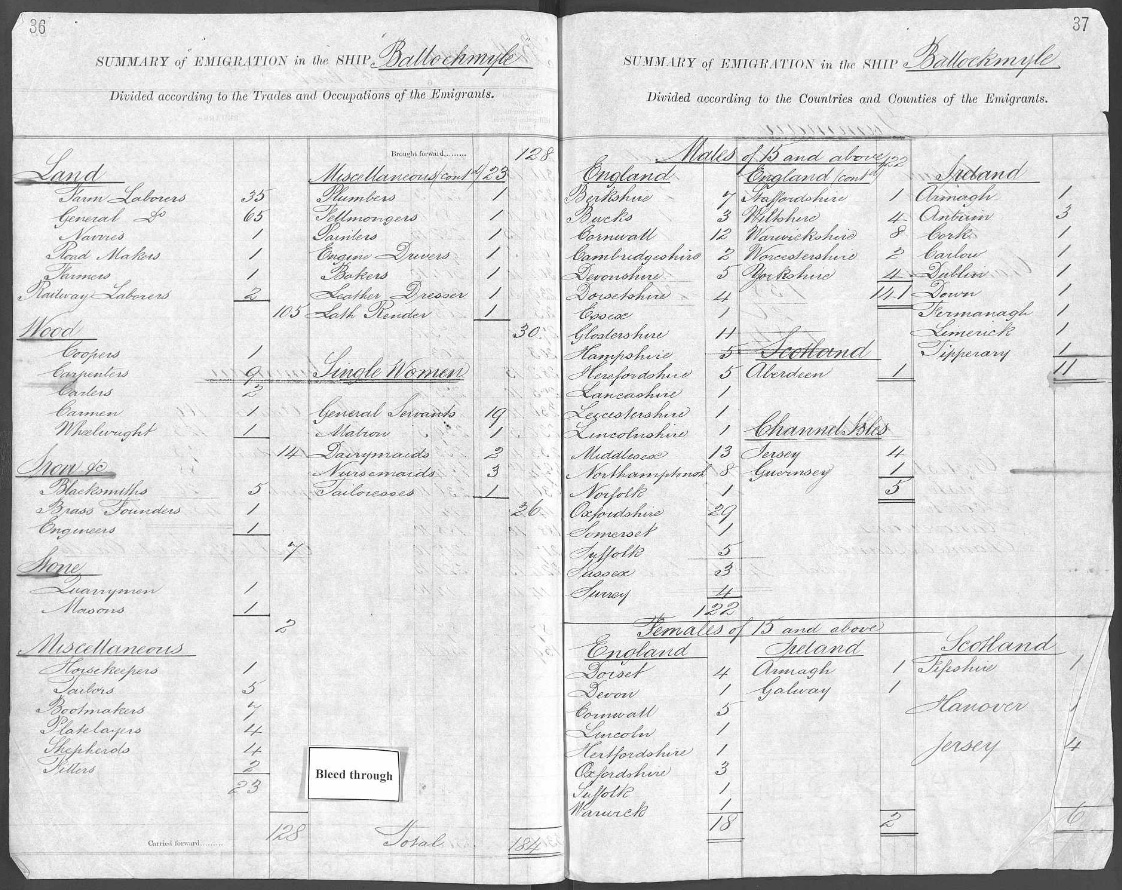 36
SUMMARY of EMIGRATION in the SHIP Ballochmyle
Divided according to the Trades and Occupations of the Emigrants.
Land
Farm Laborers 35
General Do 65
Navvies 1
Road Makers 1
Farmers 1
Railway Laborers 2
105
Wood
Coopers 1
Carpenters 9
Carters 2
Carmen 1
Wheelwright 1
14
Iron &c
Blacksmiths 5
Brass Founders 1
Engineers 1
7
Stone
Quarrymen 1
Masons 1
2
Miscellaneous
Horsekeepers 1
Tailors 5
Bootmakers 7
Platelayers 4
Shepherds 4
Fitters 2
23
128
Carried forward.........
Brought forward......... 128
Miscellaneous (contd) 23
Plumbers 1
Fellmongers 1
Painters 1
Engine Drivers 1
Bakers 1
Leather Dresser 1
Lath Render 1
30
Single Women
General Servants 19
Matron 1
Dairymaids 2
Nursemaids 3
Tailoresses 1
26
Bleed through
Total 184
37
SUMMARY of EMIGRATION in the SHIP Ballockmyle
Divided according to the Countries and Counties of the Emigrants.
Males of 15 and above
England
Berkshire 7
Bucks 3
Cornwall 12
Cambridgeshire 2
Devonshire 5
Dorsetshire 4
Essex 1
Glostershire 11
Hampshire 5
Herefordshire 5
Lancashire 1
Leicestershire 1
Lincolnshire 1
Middlesex 13
Northamptnsh 8
Norfolk 1
Oxfordshire 29
Somerset 1
Suffolk 5
Sussex 3
Surrey 4
122
England (contd) 122
Staffordshire 1
Wiltshire 4
Warwickshire 8
Worcestershire 2
Yorkshire 4
141
Scotland
Aberdeen 1
Channel Isles
Jersey 4
Guernsey 1
5
Ireland
Armagh 1
Antrim 3
Cork 1
Carlow 1
Dublin 1
Down 1
Fermanagh 1
Limerick 1
Tipperary 1
11
Females of 15 and above
England
Dorset 4
Devon 1
Cornwall 5
Lincoln 1
Hertfordshire 1
Oxfordshire 3
Suffolk 1
Warwick 1
18
Ireland
Armagh 1
Galway 1
2
Scotland
Fifeshire 1
Hanover 1
Jersey 4
6